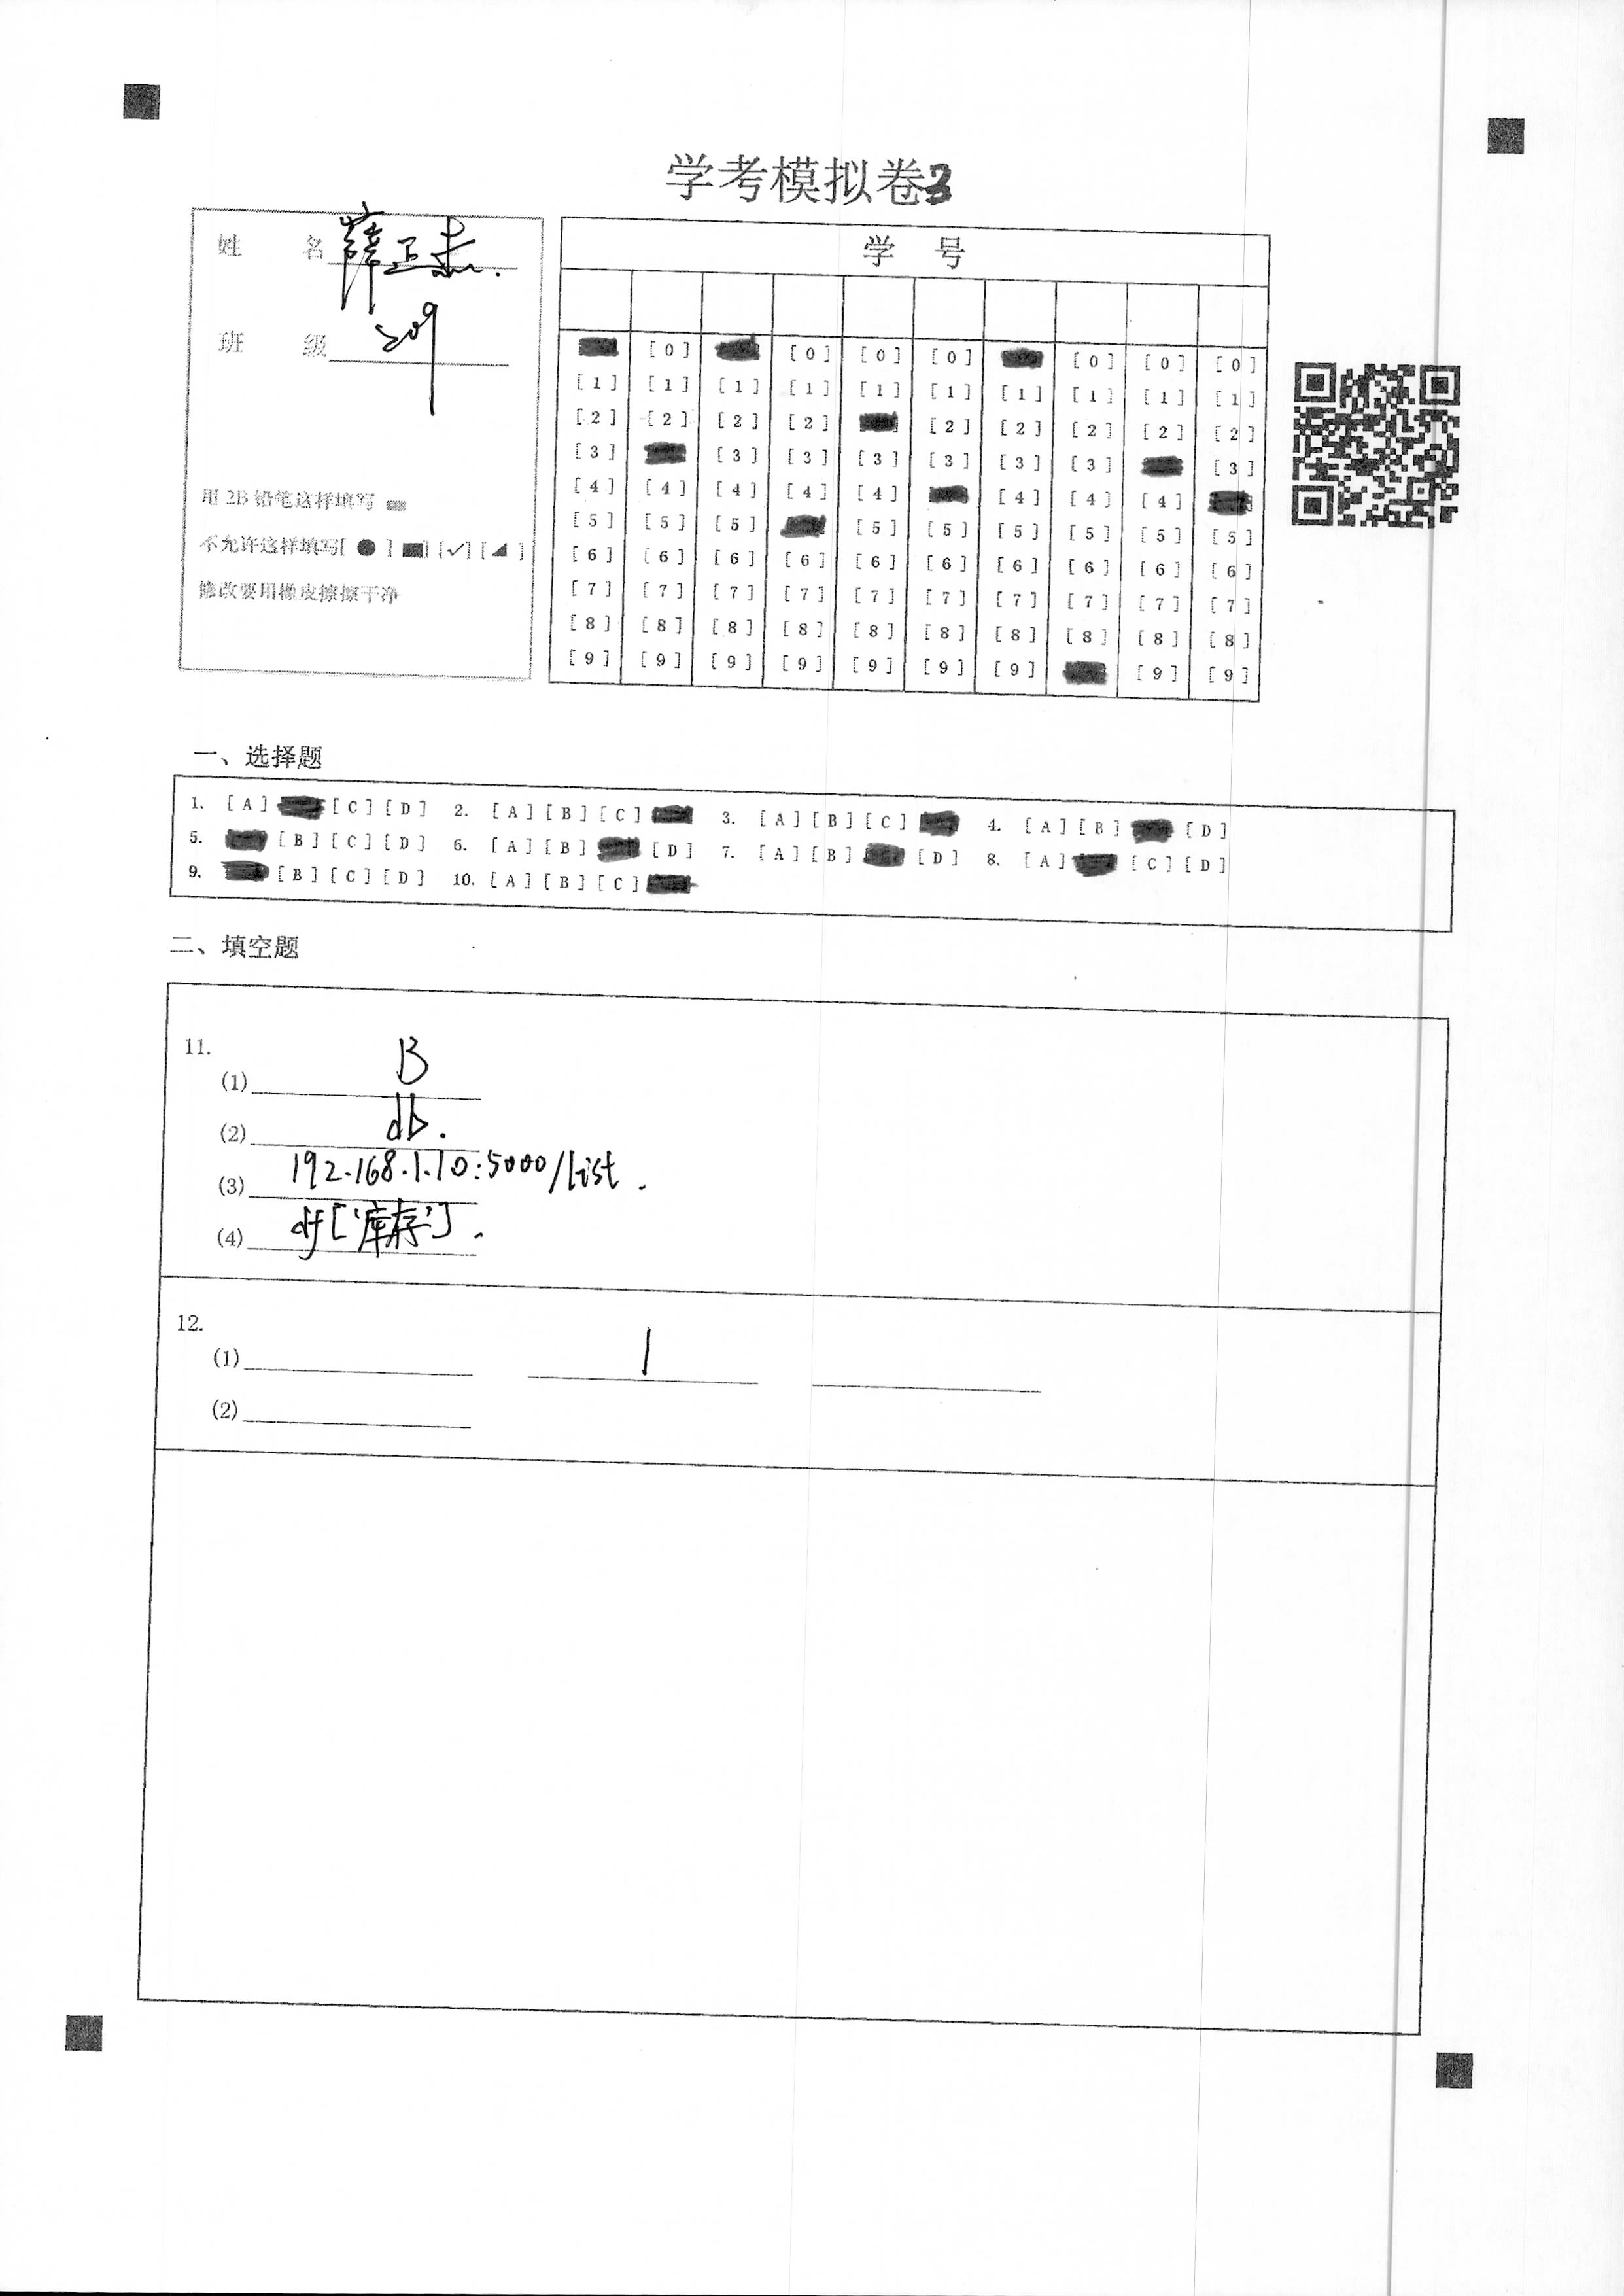 学考模拟卷3
姓 名 薛正杰.
班 级 209
用 2B 铅笔这样填写
不允许这样填写[ ● ] [■] [✓] [◢ ]
修改要用橡皮擦擦干净
学 号
[0] [0] [0] [0] [0] [0] [0]
[1] [1] [1] [1] [1] [1] [1] [1] [1] [1]
[2] [2] [2] [2] [2] [2] [2] [2] [2]
[3] [3] [3] [3] [3] [3] [3] [3]
[4] [4] [4] [4] [4] [4] [4] [4]
[5] [5] [5] [5] [5] [5] [5] [5] [5]
[6] [6] [6] [6] [6] [6] [6] [6] [6] [6]
[7] [7] [7] [7] [7] [7] [7] [7] [7] [7]
[8] [8] [8] [8] [8] [8] [8] [8] [8] [8]
[9] [9] [9] [9] [9] [9] [9] [9] [9]
一、选择题
1. [A] [C] [D] 2. [A] [B] [C] 3. [A] [B] [C] 4. [A] [B] [D]
5. [B] [C] [D] 6. [A] [B] [D] 7. [A] [B] [D] 8. [A] [C] [D]
9. [B] [C] [D] 10. [A] [B] [C]
二、填空题
11.
(1) B
(2) db.
(3) 192.168.1.10:5000/list.
(4) df['库存'].
12.
(1) 1
(2)